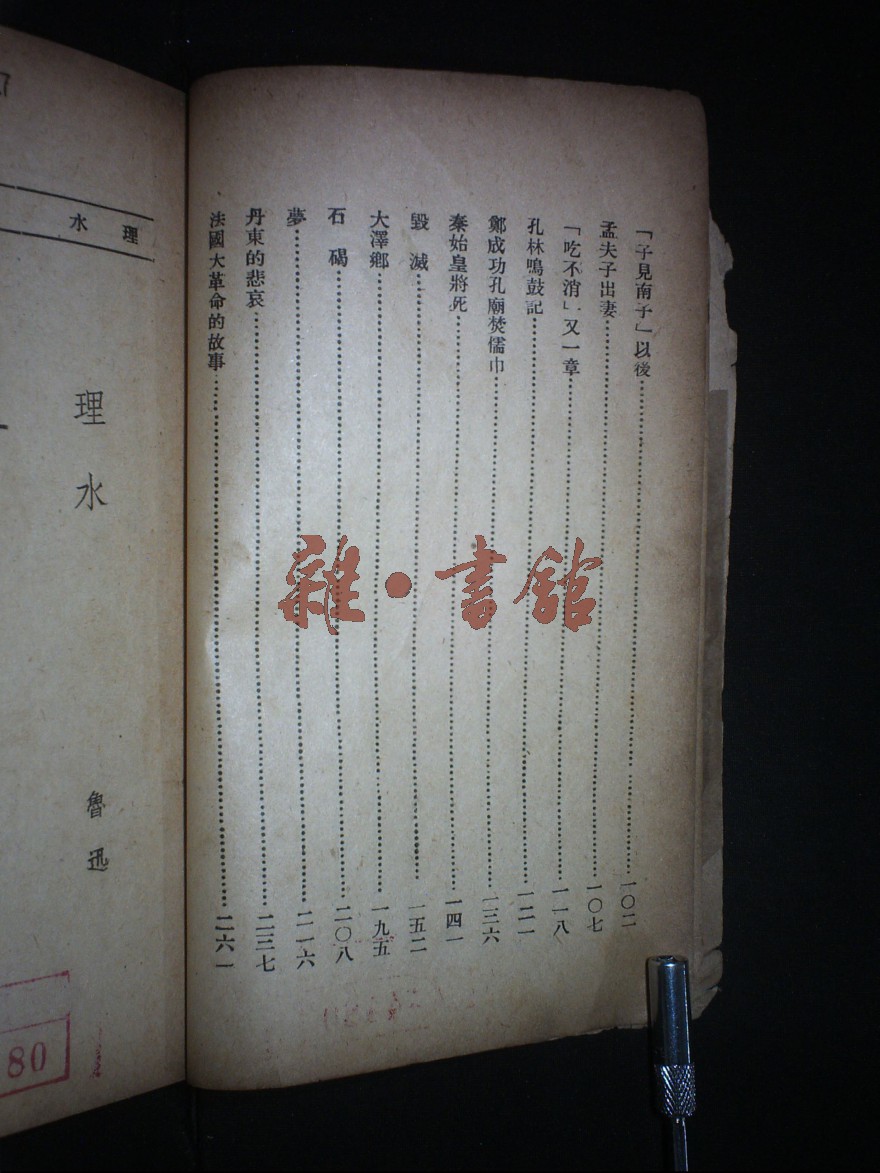 「子見南子」以後……一〇二
孟夫子出妻……一〇七
「吃不消」又一章……一一八
孔林鳴鼓記……一二一
鄭成功孔廟焚儒巾……一三六
秦始皇將死……一四一
毀滅……一五二
大澤鄉……一九五
石碣……二〇八
夢……二一六
丹東的悲哀……二三七
法國大革命的故事……二六一
理水
理水
魯迅
80
雜·書館